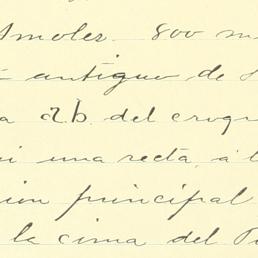 Smoler. 800 m
antiguo de
a a.b. del croqu
i una recta, á l
ion principal
la cima del P